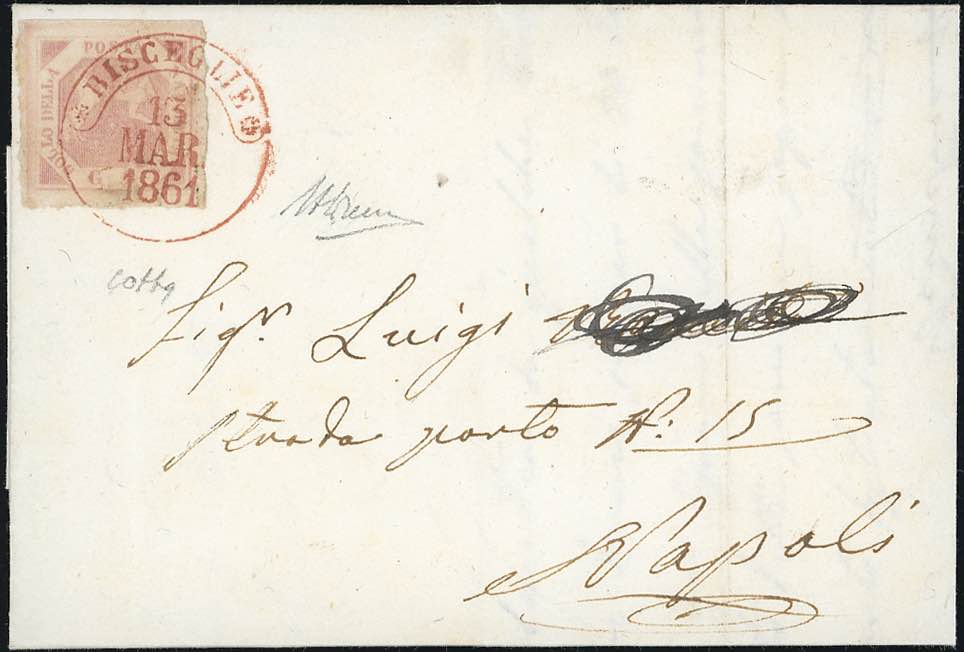 POSTA
BOLLO DELLA
G
BISCEGLIE
13
MAR
1861
Sigr. Luigi
Strada porto N: 15
Napoli